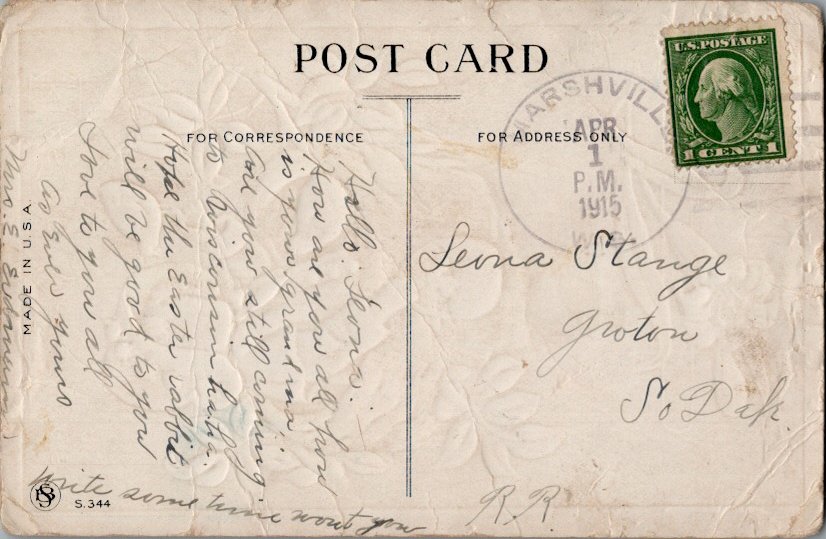 POST CARD
FOR CORRESPONDENCE
FOR ADDRESS ONLY
U.S. POSTAGE
1 CENT 1
MARSHVILLE
APR
1
P.M.
1915
WIS.
Hello. Leona.
How are you all how
is your grandma
are you still coming
to Wisconsin
Hope the Easter rabbit
will be good to you
Love to you all
As Ever yours
Mrs. E.
write some time wont you
Leona Stange
Groton
So Dak.
R.R.
MADE IN U.S.A.
S. 344